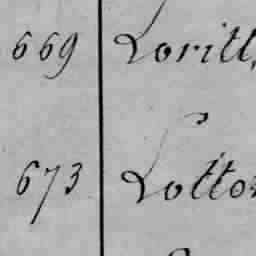 669 Loritt
673 Lotto